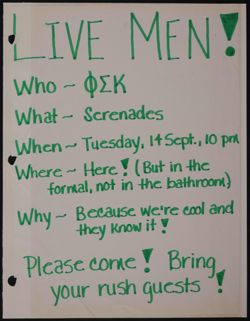 LIVE MEN!
Who ~ ΦΣK
What ~ Serenades
When ~ Tuesday, 14 Sept., 10 pm
Where ~ Here! (But in the
formal, not in the bathroom)
Why ~ Because we're cool and
they know it!
Please come! Bring
your rush guests!